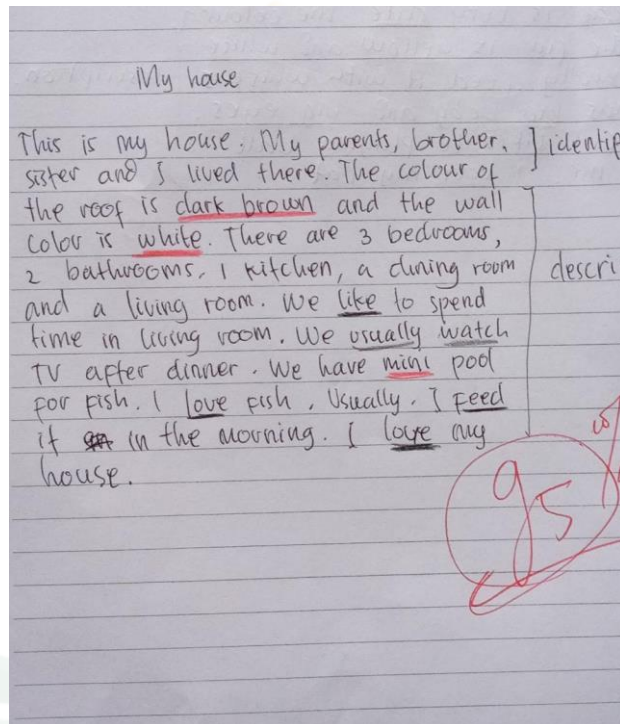 My house
This is my house. My parents, brother, ] identif
sister and I lived there. The colour of
the roof is dark brown and the wall
color is white. There are 3 bedrooms,
2 bathrooms, 1 kitchen, a dining room descri
and a living room. We like to spend
time in living room. We usually watch
TV after dinner. We have mini pool
for fish. I love fish. Usually. I feed
it in the morning. I love my
house.
95